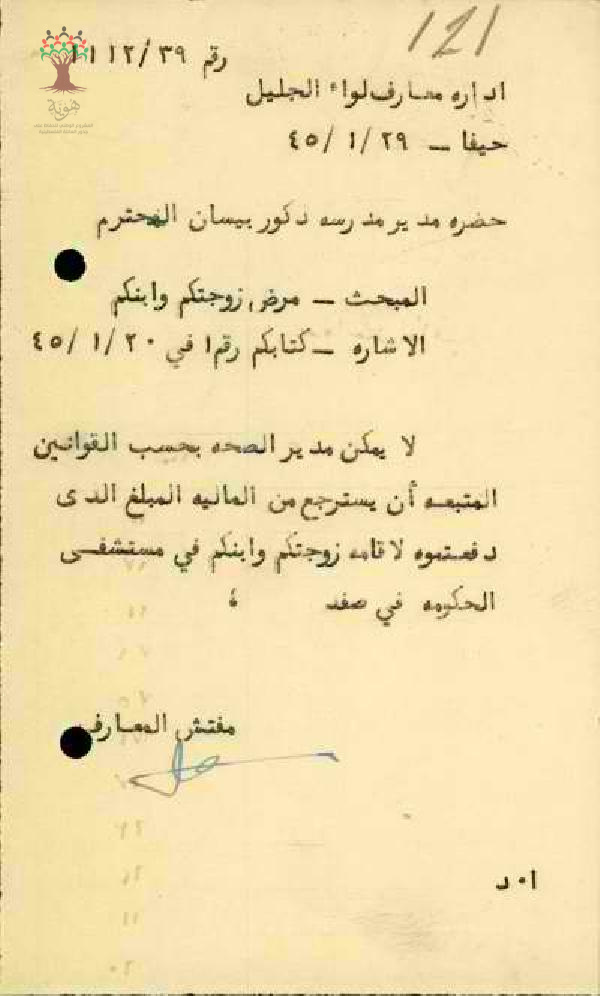 121
رقم ١١١٢/٣٩
اداره معارف لواء الجليل
حيفا ــ ٤٥/١/٢٩
حضره مدير مدرسه ذكور بيسان المحترم
المبحث ــ مرض زوجتكم وابنكم
الاشاره ــ كتابكم رقم١ في ٤٥/١/٢٠
لا يمكن مدير الصحه بحسب القوانين
المتبعه أن يسترجع من الماليه المبلغ الذى
دفعتموه لاقامه زوجتكم وابنكم في مستشفى
الحكومه في صفد ؛
مفتش المعارف
ا٠د
هوية